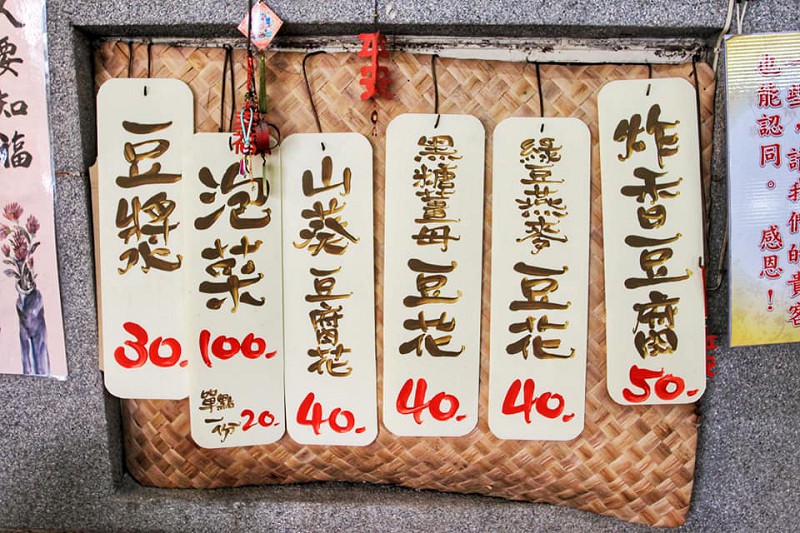 要知福
豆漿
30.
泡菜
100.
單點
一份
20.
山葵
豆腐花
40.
黑糖薑母
豆花
40.
綠豆燕麥
豆花
40.
炸香豆腐
50.
我們的貴客
也能認同。感恩!